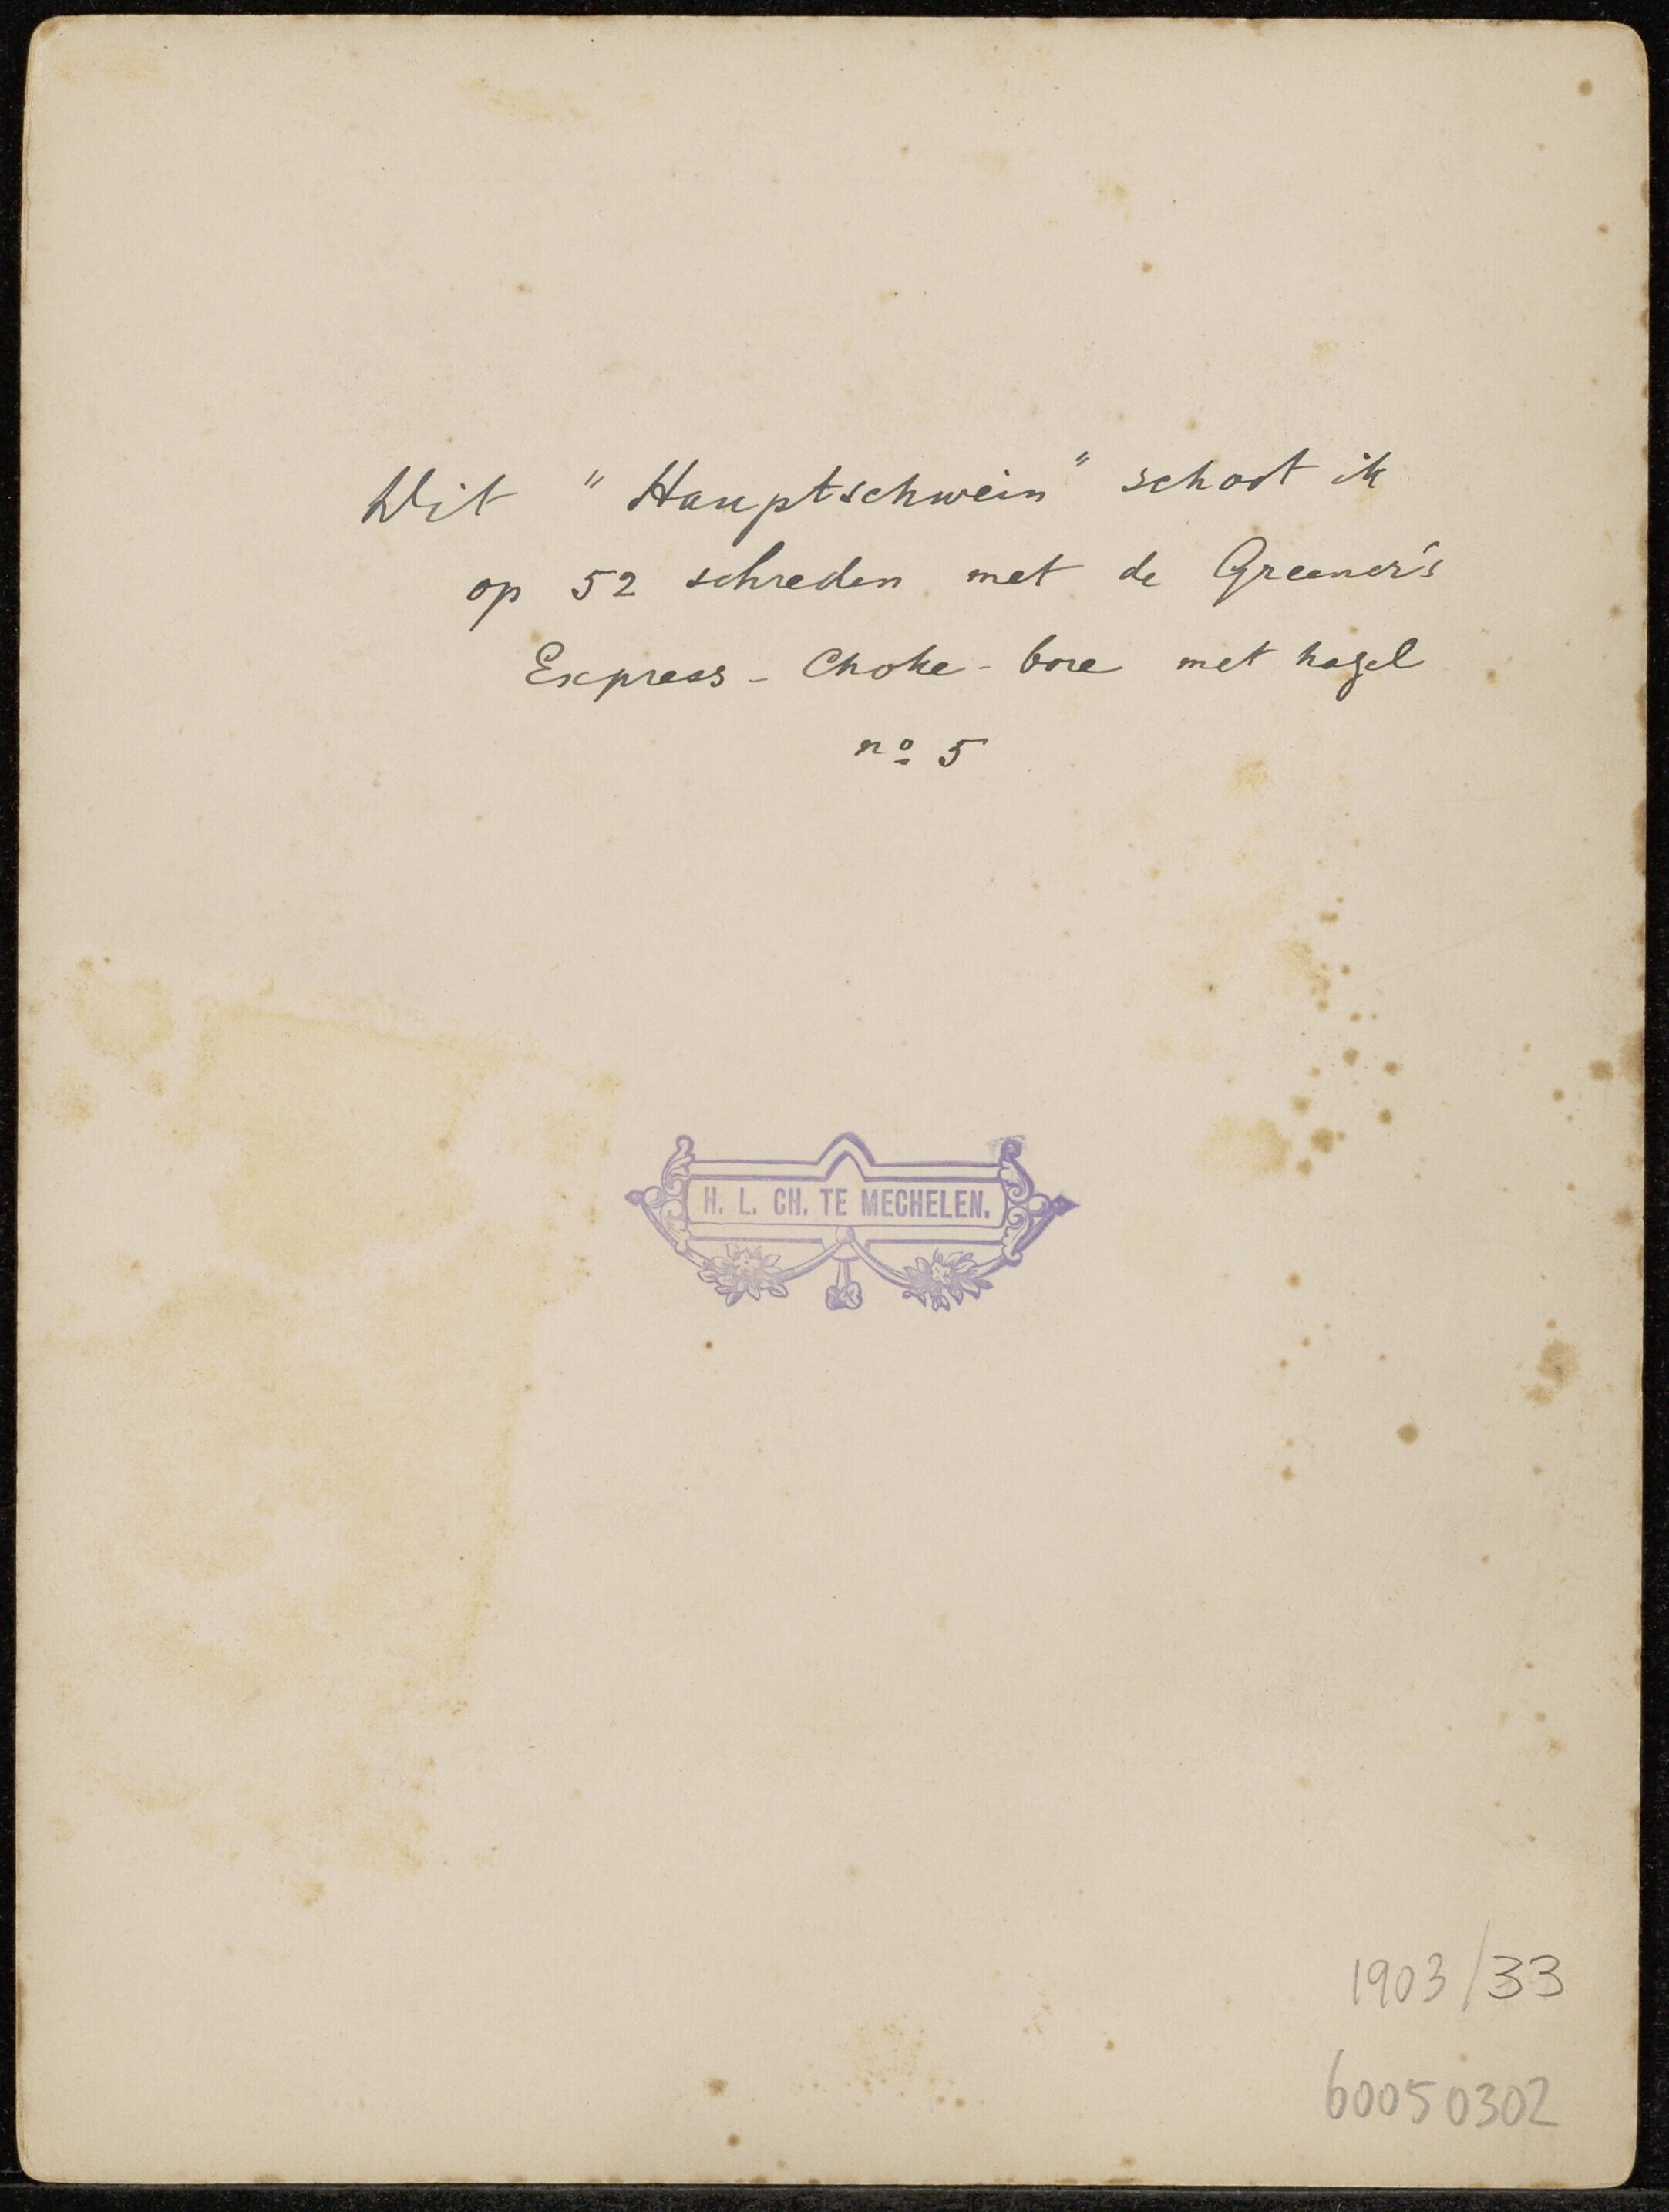 Dit "Hauptschwein" schoot ik
op 52 schreden met de Greener's
Express - Choke - bore met hagel
nº 5
H. L. CH. TE MECHELEN.
1903/33
60050302